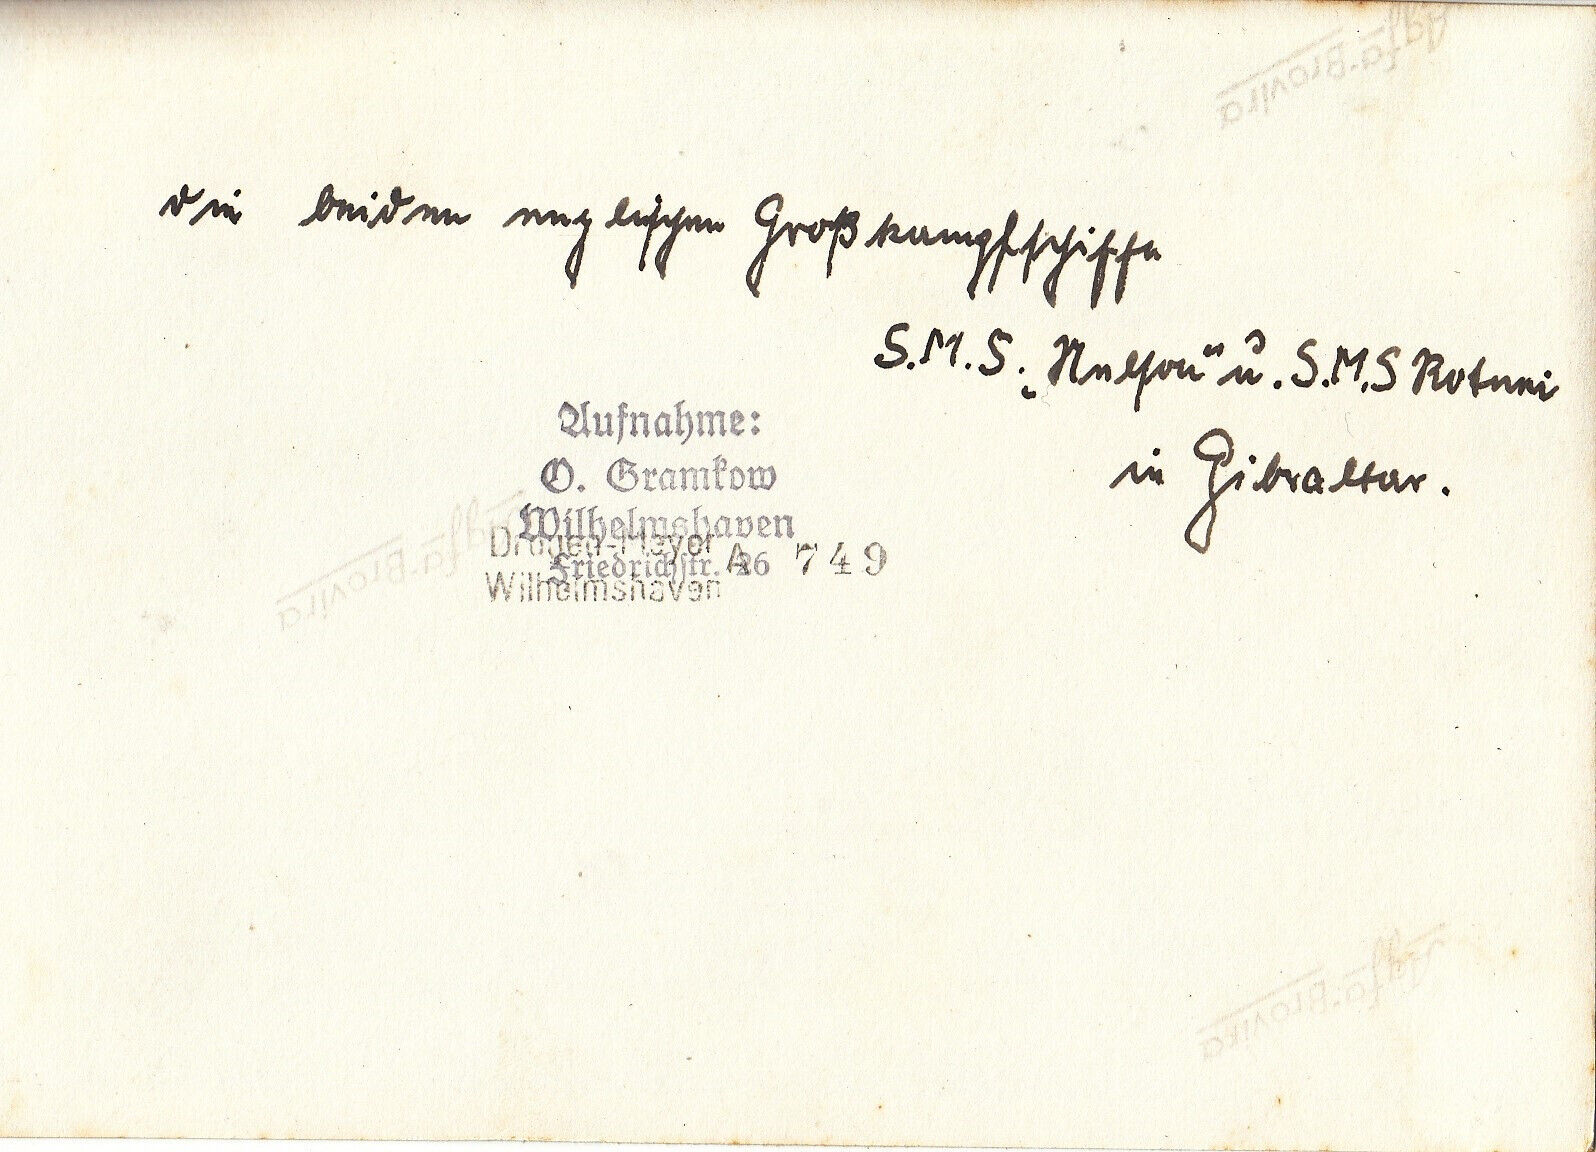 Agfa-Brovira
die beiden englischen Großkampfschiffe
S.M.S. „Nelson“ u. S.M.S Rotnei
in Gibraltar.
Aufnahme:
O. Gramkow
Wilhelmshaven
Friedrichstr. 26
Drogen-Meyer
Wilhelmshaven
A 749
Agfa-Brovira
Agfa-Brovira